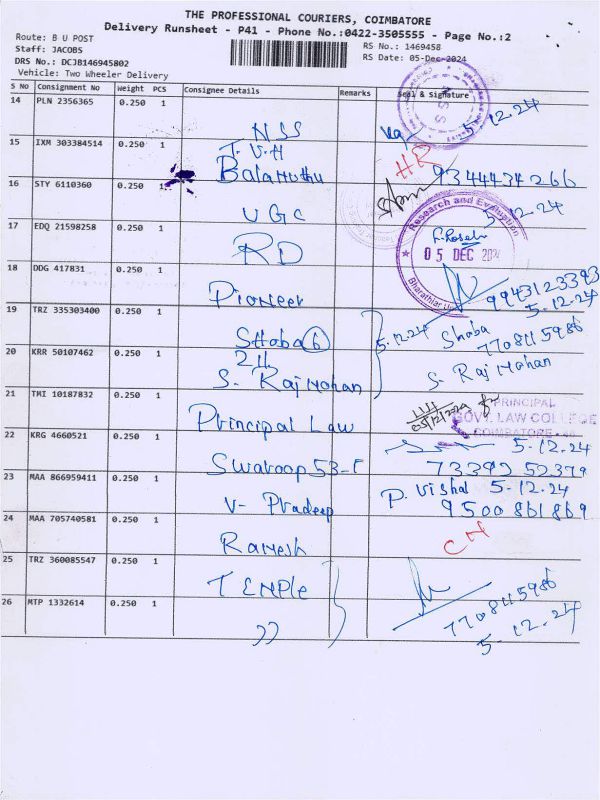 THE PROFESSIONAL COURIERS, COIMBATORE
Delivery Runsheet - P41 - Phone No.:0422-3505555 - Page No.:2
Route: B U POST
RS No.: 1469458
Staff: JACOBS
RS Date: 05-Dec-2024
DRS No.: DCJB146945802
Vehicle: Two Wheeler Delivery
S No Consignment No Weight PCS Consignee Details Remarks Seal & Signature
14 PLN 2356365 0.250 1 NSS 5.12.24
15 IXM 303384514 0.250 1 T.V.H
Balamuthu HR 9344434266
16 STY 6110360 0.250 1 UGC 5-12.24
Research and Evaluation
05 DEC 2024
Bharathiar
17 EDQ 21598258 0.250 1 RD
18 DDG 417831 0.250 1 Pioneer 9943123393
5-12.24
19 TRZ 335303400 0.250 1 Shoba 6 5.12.24 Shoba
7708115986
20 KRR 50107462 0.250 1 24
S. Rajmohan S. Rajmohan
21 TMI 10187832 0.250 1 Principal Law 05/12/2024
PRINCIPAL
GOVT. LAW COLLEGE
COIMBATORE
22 KRG 4660521 0.250 1 Swaroop 53-F 5.12.24
73392 52379
23 MAA 866959411 0.250 1 V- Pradeep P. Vishal 5-12.24
9500861869
24 MAA 705740581 0.250 1 Ramesh CN
25 TRZ 360085547 0.250 1 TEMPle
26 MTP 1332614 0.250 1 )) 7708115986
5-12.24